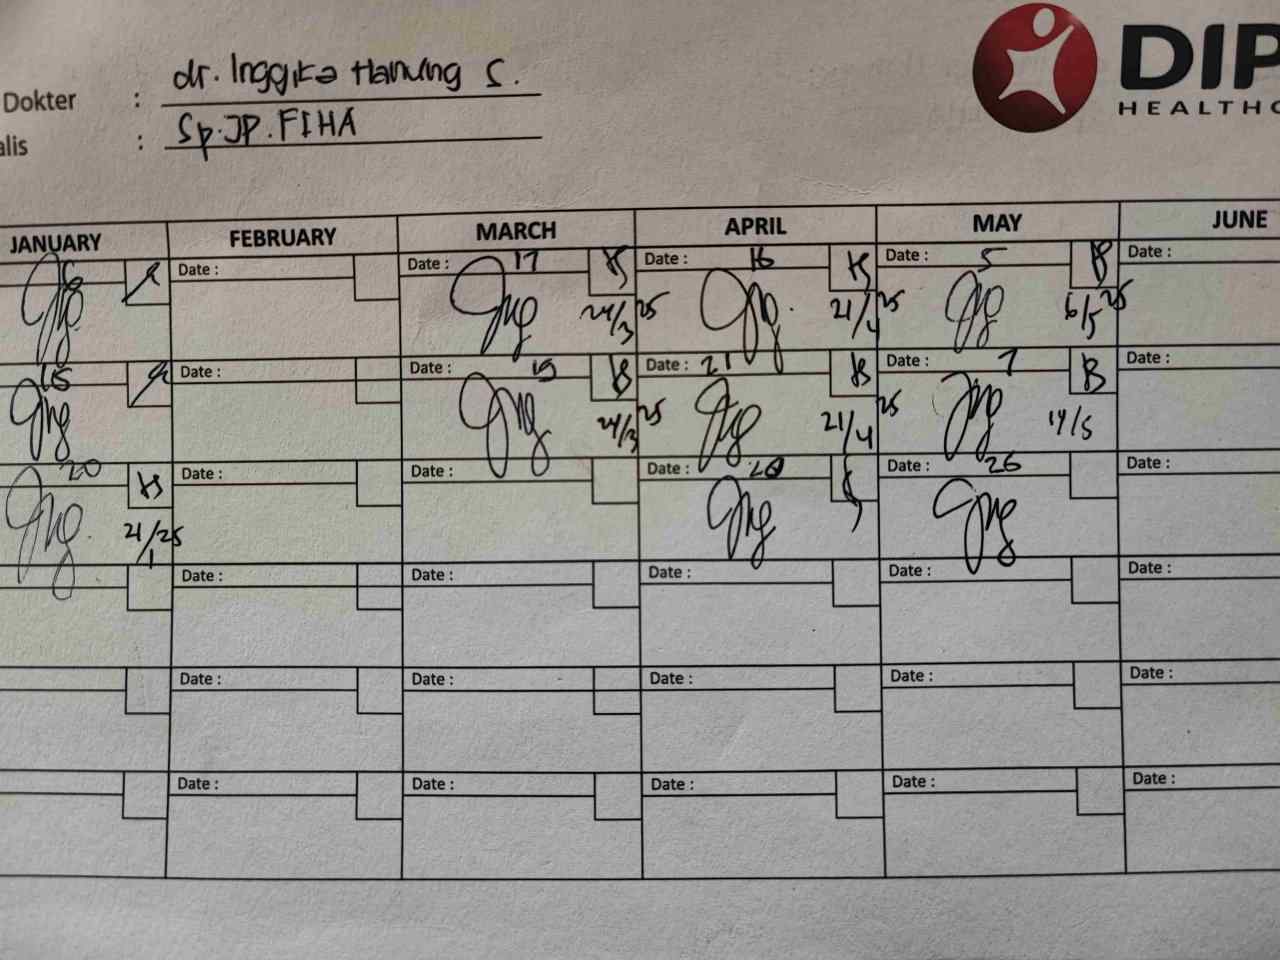 dr. Inggita Hanung S.
Dokter :
Sp.JP.FIHA
alis :
DIP
HEALTHC
JANUARY FEBRUARY MARCH APRIL MAY JUNE
6 Date : Date : 17 Date : 16 Date : 5 Date :
24/3 25 21/4 25 6/5 25
15 Date : Date : 19 Date : 21 Date : 7 Date :
24/3 25 21/4 25 14/5
20 Date : Date : Date : 28 Date : 26 Date :
21/1 25
Date : Date : Date : Date : Date :
Date : Date : Date : Date : Date :
Date : Date : Date : Date : Date :